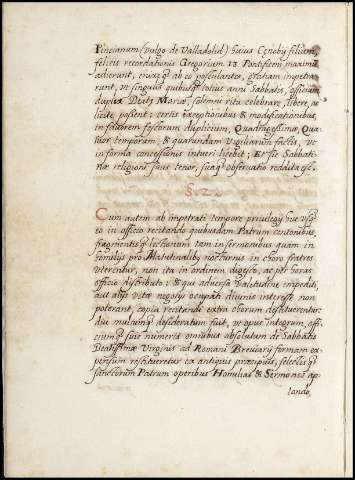 Pincianum (vulgo de Valladolid) huius Cęnobij filium,
felicis recordationis Gregorium 13 Pontificem maximũ
adierunt, eumq; ab eo postulantes, gratiam impetra-
runt, vt singulis quibusq; totius anni Sabbatis, officium
duplex Deip. Mariæ, solemni ritu celebrare, libere, ac
licite possent; certis exceptionibus & modificationibus,
in favorem festorum duplicium, Quadragesimæ, Qua-
tuor temporum, & quarundam Vigiliarum factis, vt
in forma concessionis intueri licebit; Et sic Sabbati-
næ religioni suus tenor, suaq; observatio reddita est.
§. 2.
Cum autem ab impetrati tempore privilegij huc vsq;
eo in officio recitando quibusdam Patrum centonibus,
fragmentisq; lectionum tam in sermonibus quam in
homilijs pro Matutinalibus nocturnis in choro fratres
vterentur, non ita in ordinem digesto, ac per horas
officio distributo: & qui adversa valitudine impediti,
aut alijs vitæ negotijs occupati divinis interesse non
poterant, copia recitandi extra chorum destituerentur:
diu multumq; desideratum fuit, vt opus integrum, offi-
ciumq; suis numeris omnibus absolutum de Sabbatis
Beatissimæ Virginis ad Romani Breviarij formam ex-
pensum restitueretur ex antiquis præcipuis, selectisq;
sanctorum Patrum operibus Homilias & Sermones ap-
tando,